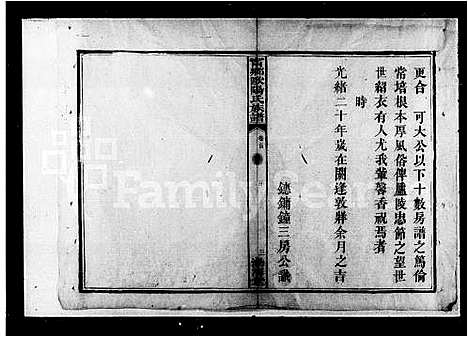 更合 可大公以下十數房譜之篤倫
常培根本厚風俗俾廬陵忠節之望世
世紹衣有人尤我輩馨香祝焉者
時
光緒二十年歲在閼逢敦牂余月之吉
鏓鏞鐘三房公議
甯鄉歐陽氏族譜
卷首
FamilySearch